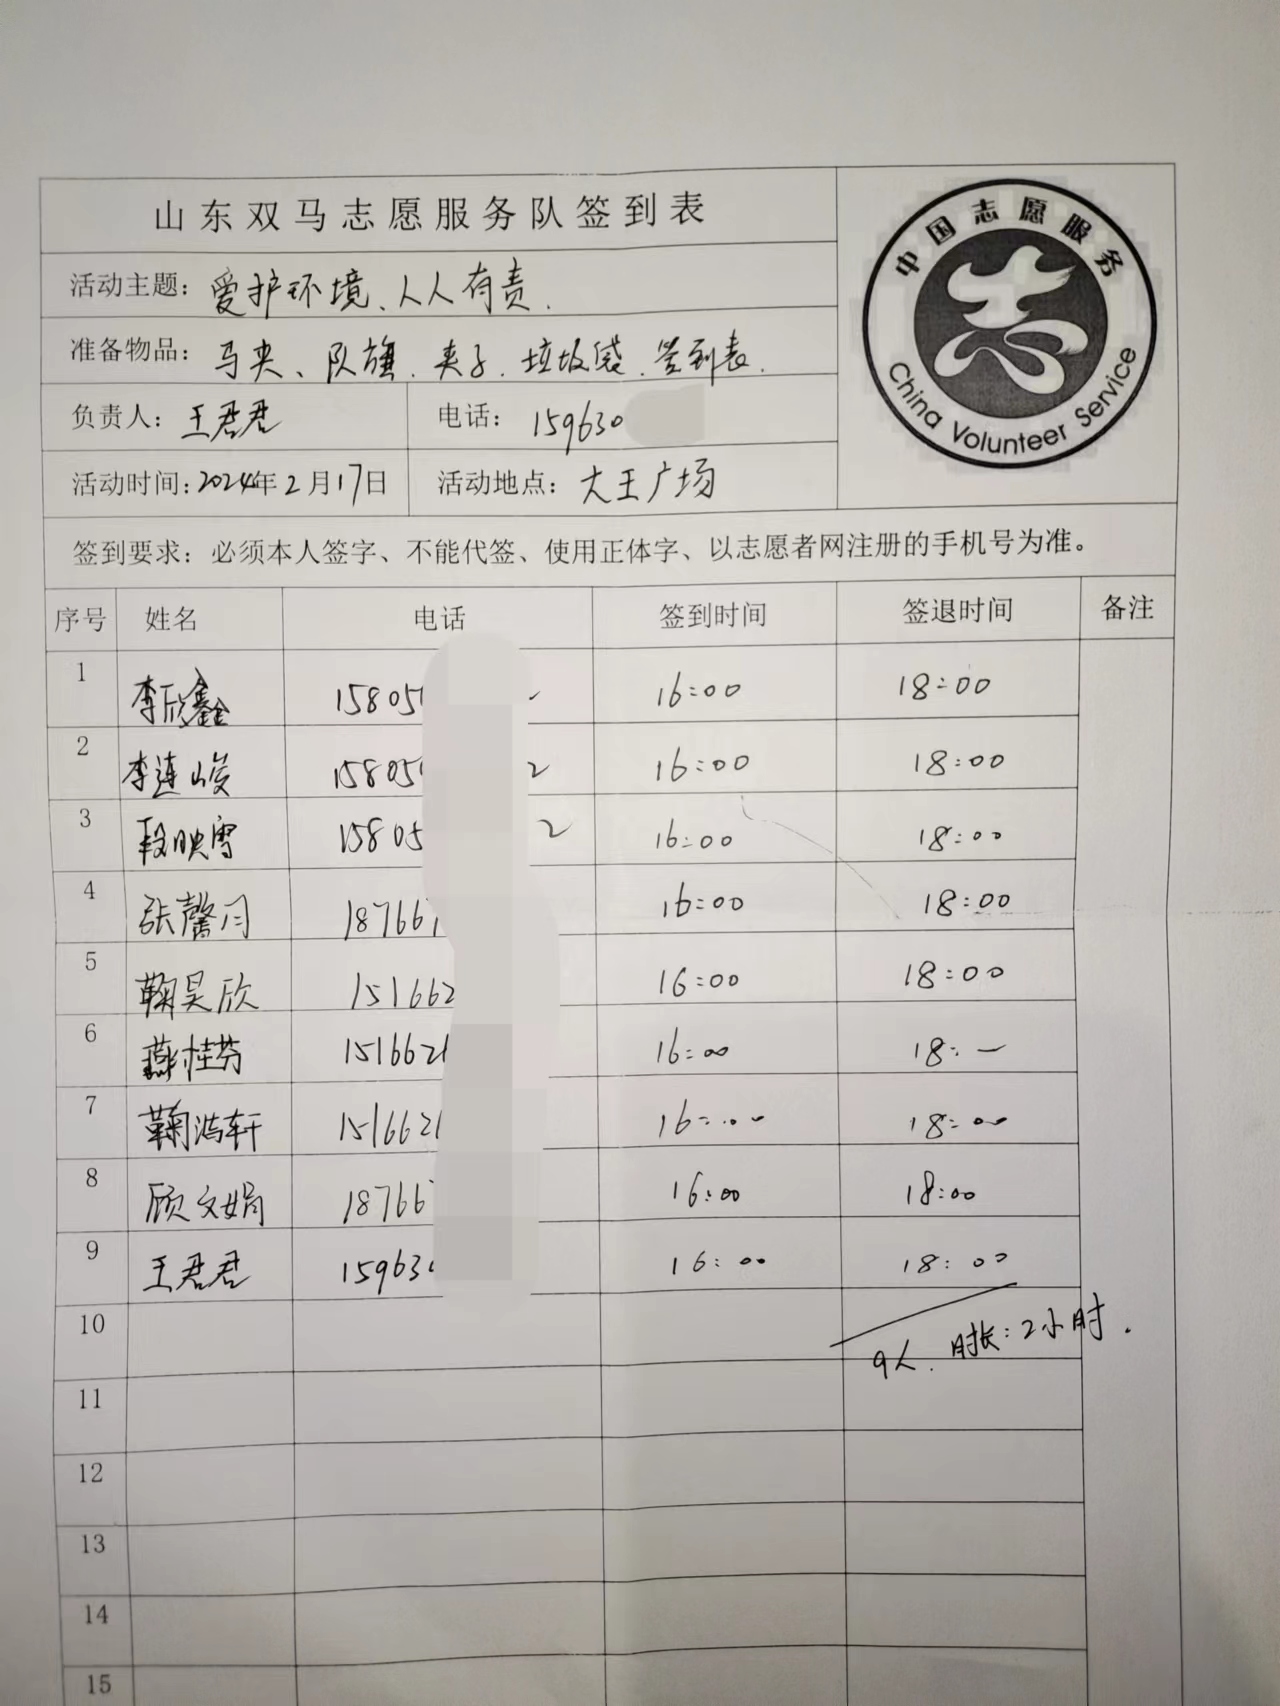 山东双马志愿服务队签到表
中国志愿服务
China Volunteer Service
活动主题：爱护环境、人人有责.
准备物品：马夹、队旗.夹子.垃圾袋.签到表.
负责人：王君君 电话：159630
活动时间：2024年2月17日 活动地点：大王广场
签到要求：必须本人签字、不能代签、使用正体字、以志愿者网注册的手机号为准。
序号 姓名 电话 签到时间 签退时间 备注
1 李欣鑫 15805 16:00 18:00
2 李连峻 15805 2 16:00 18:00
3 段映雪 15805 2 16:00 18:00
4 张馨月 187667 16:00 18:00
5 鞠昊欣 151662 16:00 18:00
6 燕桂芬 1516621 16:00 18:
7 鞠鸿轩 1516621 16:00 18:00
8 顾文娟 18766 16:00 18:00
9 王君君 159630 16:00 18:00
10
9人.时长:2小时.
11
12
13
14
15